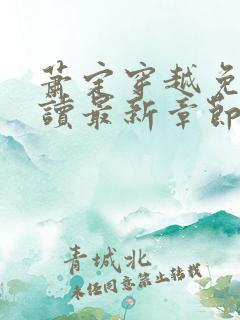 萧宋穿越免
讀最新章節
青城北
未经同意禁止转载